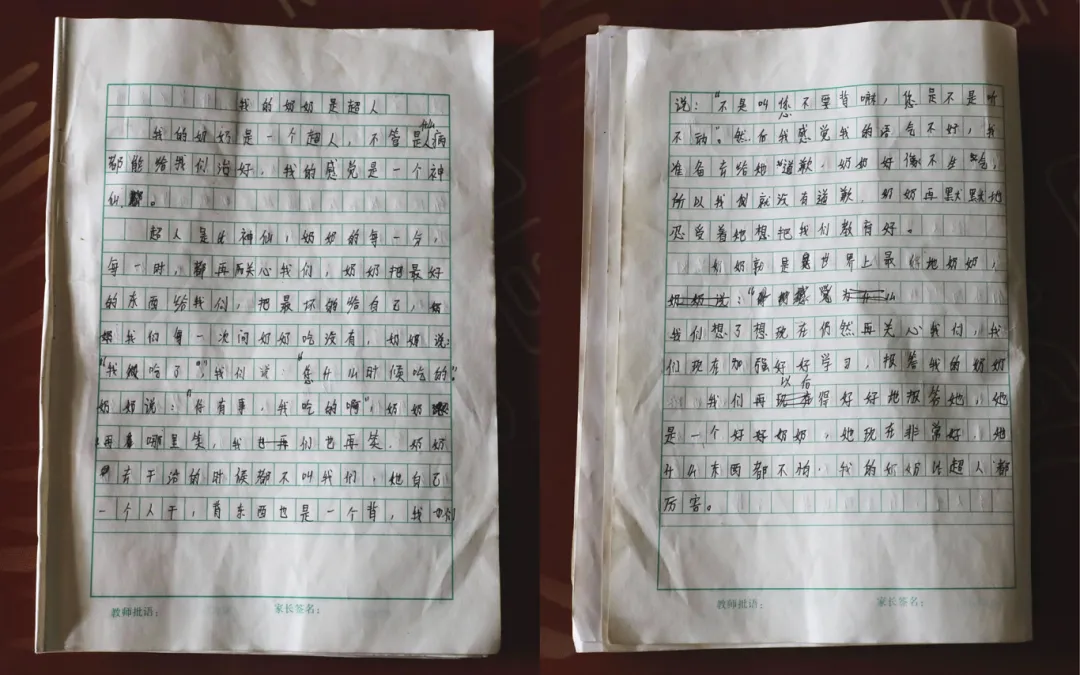 我的奶奶是超人
我的奶奶是一个超人，不管是什么病
都能给我们治好，我的感觉是一个神
仙。
超人是比神仙，奶奶的每一分，
每一时，都再关心我们，奶奶把最好
的东西给我们，把最坏的给自己，
我们每一次问奶奶吃没有，奶奶说：
“我吃了”，我们说：“您什么时候吃的。”
奶奶说：“你有事，我吃的啊”，奶奶
再哪里笑，我们也再笑．奶奶
去干活的时候都不叫我们，她自己
一个人干，背东西也是一个背，我
说：“不是叫您不要背嘛，您是不是听
不动”。然而我感觉我的语气不好，我
准备去给她道歉．奶奶好像不生气，
所以我们就没有道歉．奶奶再默默地
忍受着她想把我们教育好。
奶奶就是世界上最地奶奶，
奶奶说：“
我们想了想现在仍然再关心我们，我
们现在加强好好学习，报答我的奶奶
我们再以后得好好地报答她，她
是一个好好奶奶，她现在非常好．她
什么东西都不怕．我的奶奶比超人都
厉害。
教师批语：
家长签名：
教师批语：
家长签名：